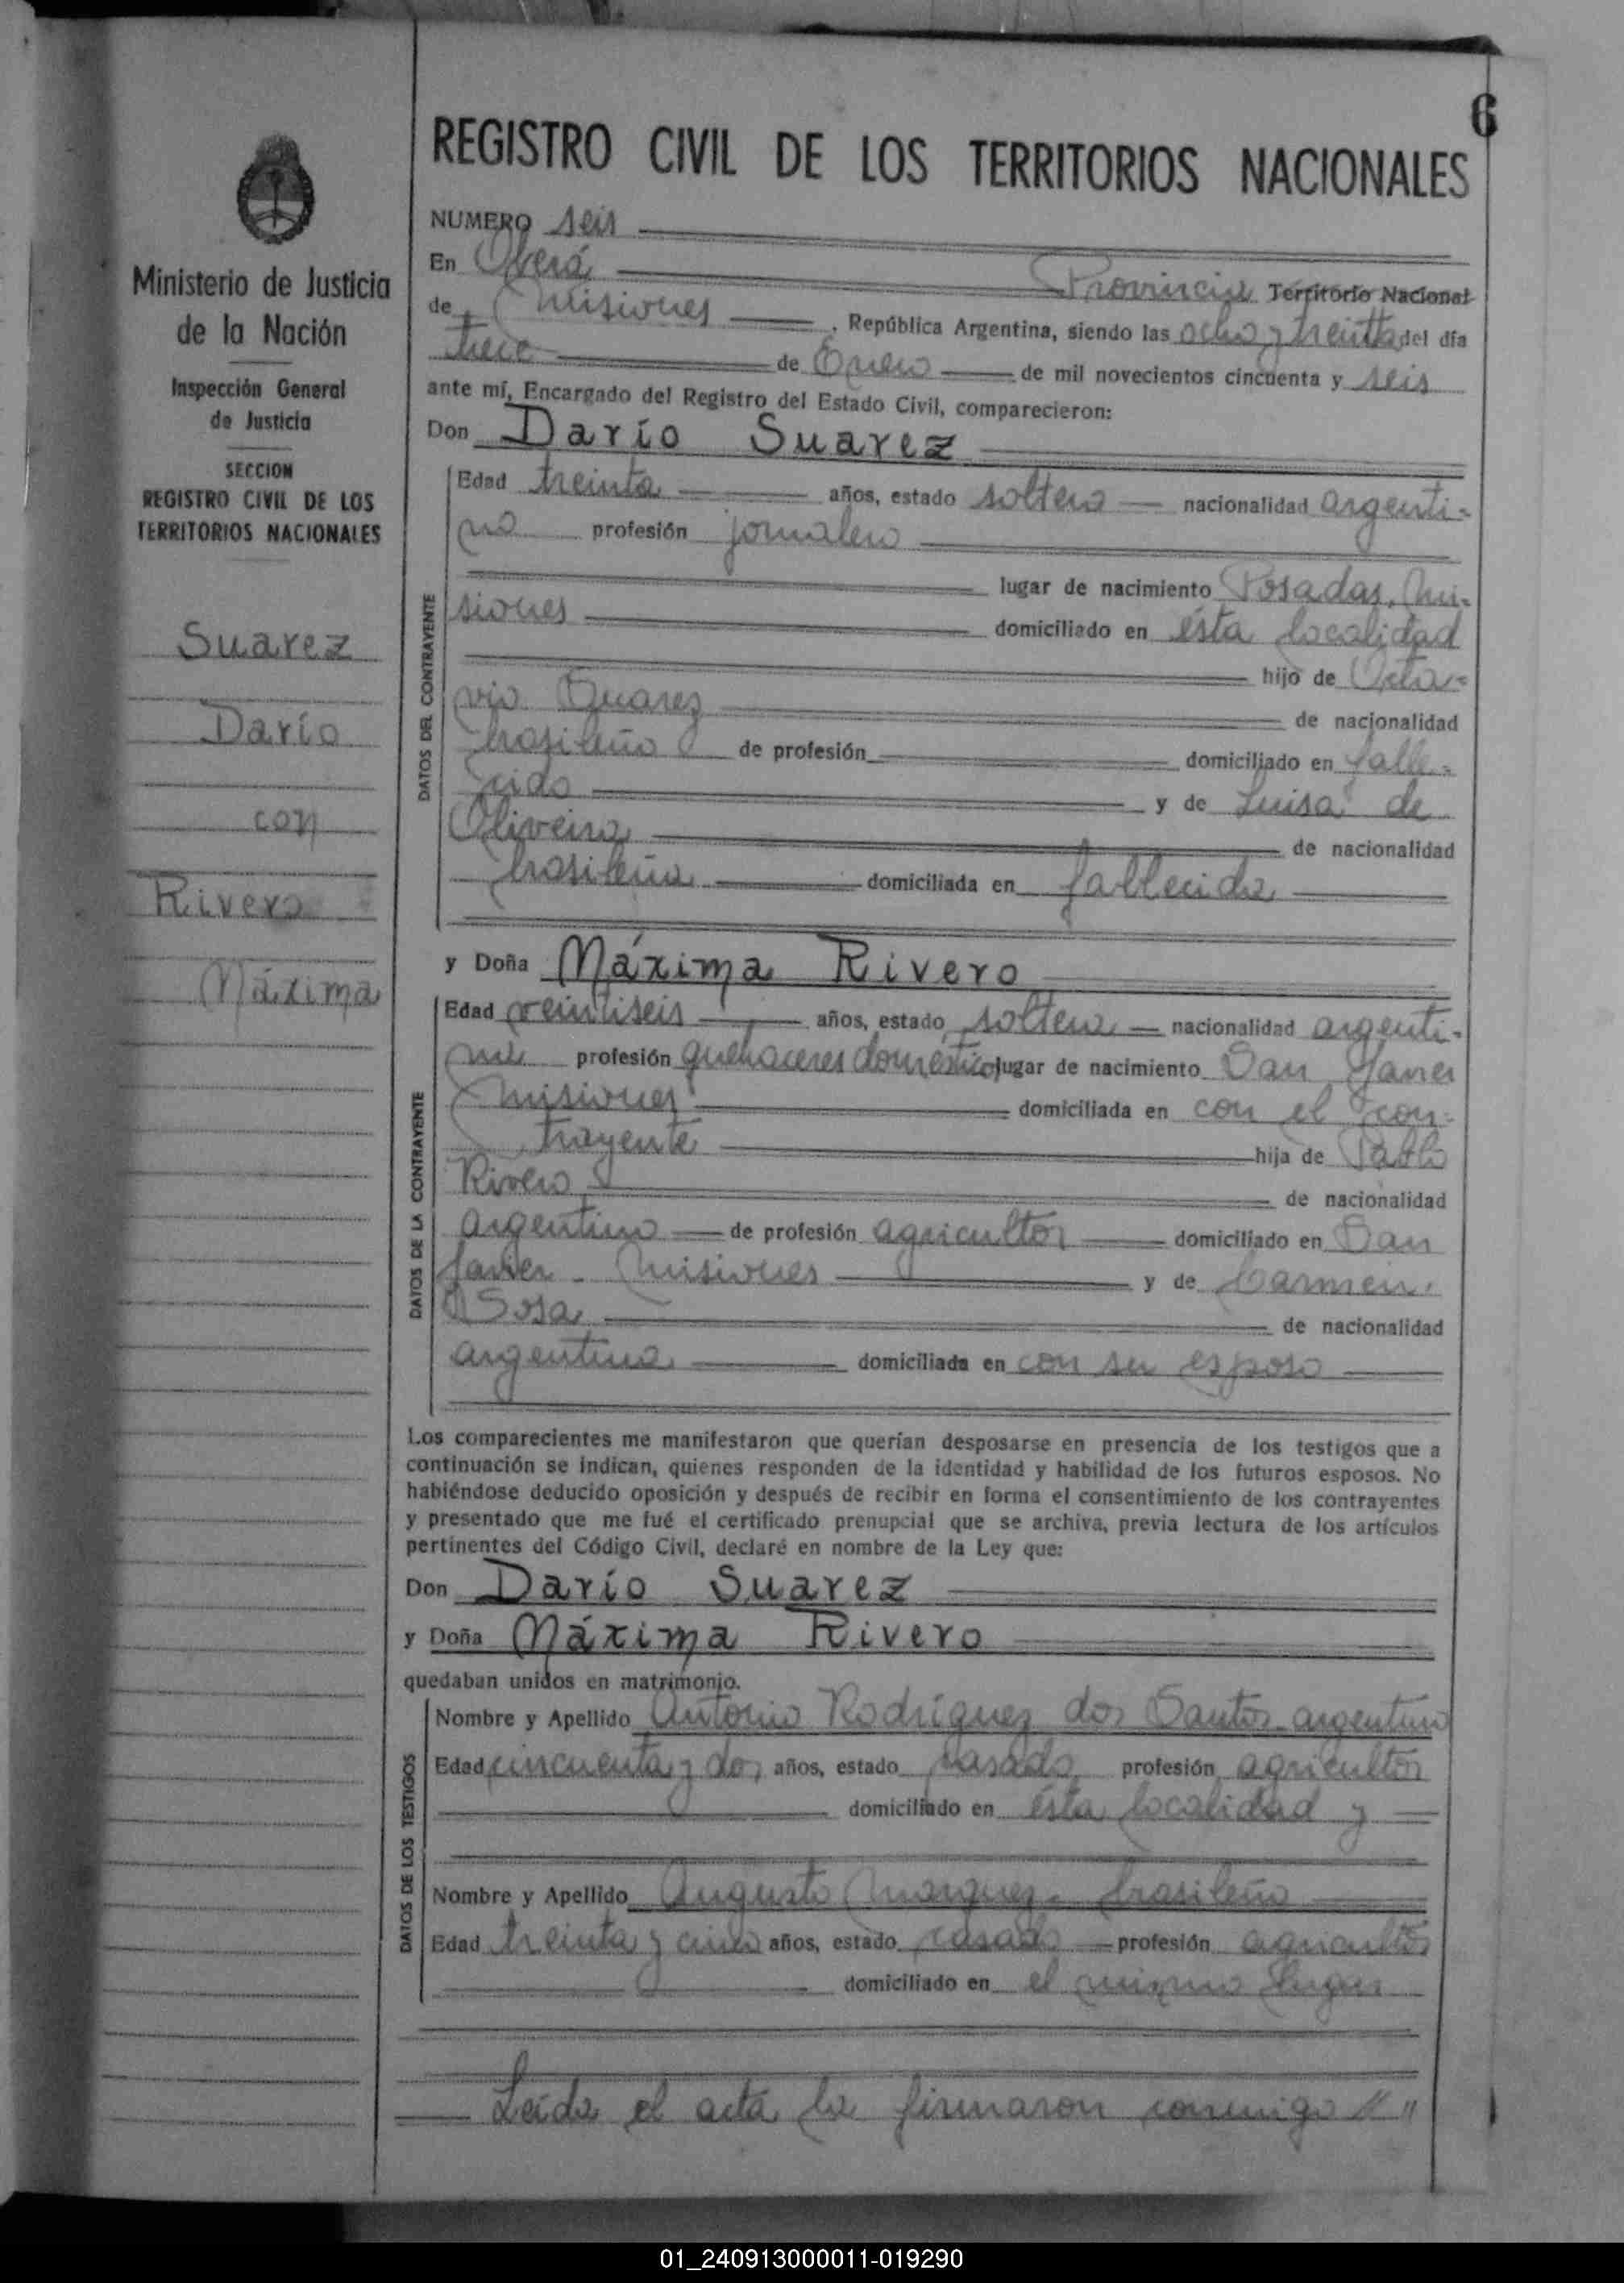 6
REGISTRO CIVIL DE LOS TERRITORIOS NACIONALES
Ministerio de Justicia
de la Nación
Inspección General
de Justicia
SECCION
REGISTRO CIVIL DE LOS
TERRITORIOS NACIONALES
Suarez
Darío
con
Rivero
Máxima
NUMERO seis
En Oberá Provincia Territorio Nacional
de Misiones, República Argentina, siendo las ocho y treinta del día
trece de Enero de mil novecientos cincuenta y seis
ante mí, Encargado del Registro del Estado Civil, comparecieron:
Don Darío Suarez
DATOS DEL CONTRAYENTE
Edad treinta años, estado soltero nacionalidad argenti-
no profesión jornalero
lugar de nacimiento Posadas, Mi-
siones domiciliado en ésta localidad
hijo de Octa-
vio Suarez de nacionalidad
brasileño de profesión domiciliado en falle-
cido y de Luisa de
Oliveira de nacionalidad
brasileña domiciliada en fallecida
y Doña Máxima Rivero
DATOS DE LA CONTRAYENTE
Edad veintiseis años, estado soltera nacionalidad argenti-
na profesión quehaceres domésticos lugar de nacimiento San Javier
Misiones domiciliada en con el con-
trayente hija de Pablo
Rivero de nacionalidad
argentino de profesión agricultor domiciliado en San
Javier - Misiones y de Carmen
Sosa de nacionalidad
argentina domiciliada en con su esposo
Los comparecientes me manifestaron que querían desposarse en presencia de los testigos que a
continuación se indican, quienes responden de la identidad y habilidad de los futuros esposos. No
habiéndose deducido oposición y después de recibir en forma el consentimiento de los contrayentes
y presentado que me fué el certificado prenupcial que se archiva, previa lectura de los artículos
pertinentes del Código Civil, declaré en nombre de la Ley que:
Don Darío Suarez
y Doña Máxima Rivero
quedaban unidos en matrimonio.
DATOS DE LOS TESTIGOS
Nombre y Apellido Antonio Rodríguez dos Santos - argentino
Edad cincuenta y dos años, estado casado profesión agricultor
domiciliado en ésta localidad y
Nombre y Apellido Augusto Marquez - brasileño
Edad treinta y cinco años, estado casado profesión agricultor
domiciliado en el mismo lugar
Leída el acta la firmaron conmigo // "
01_240913000011-019290